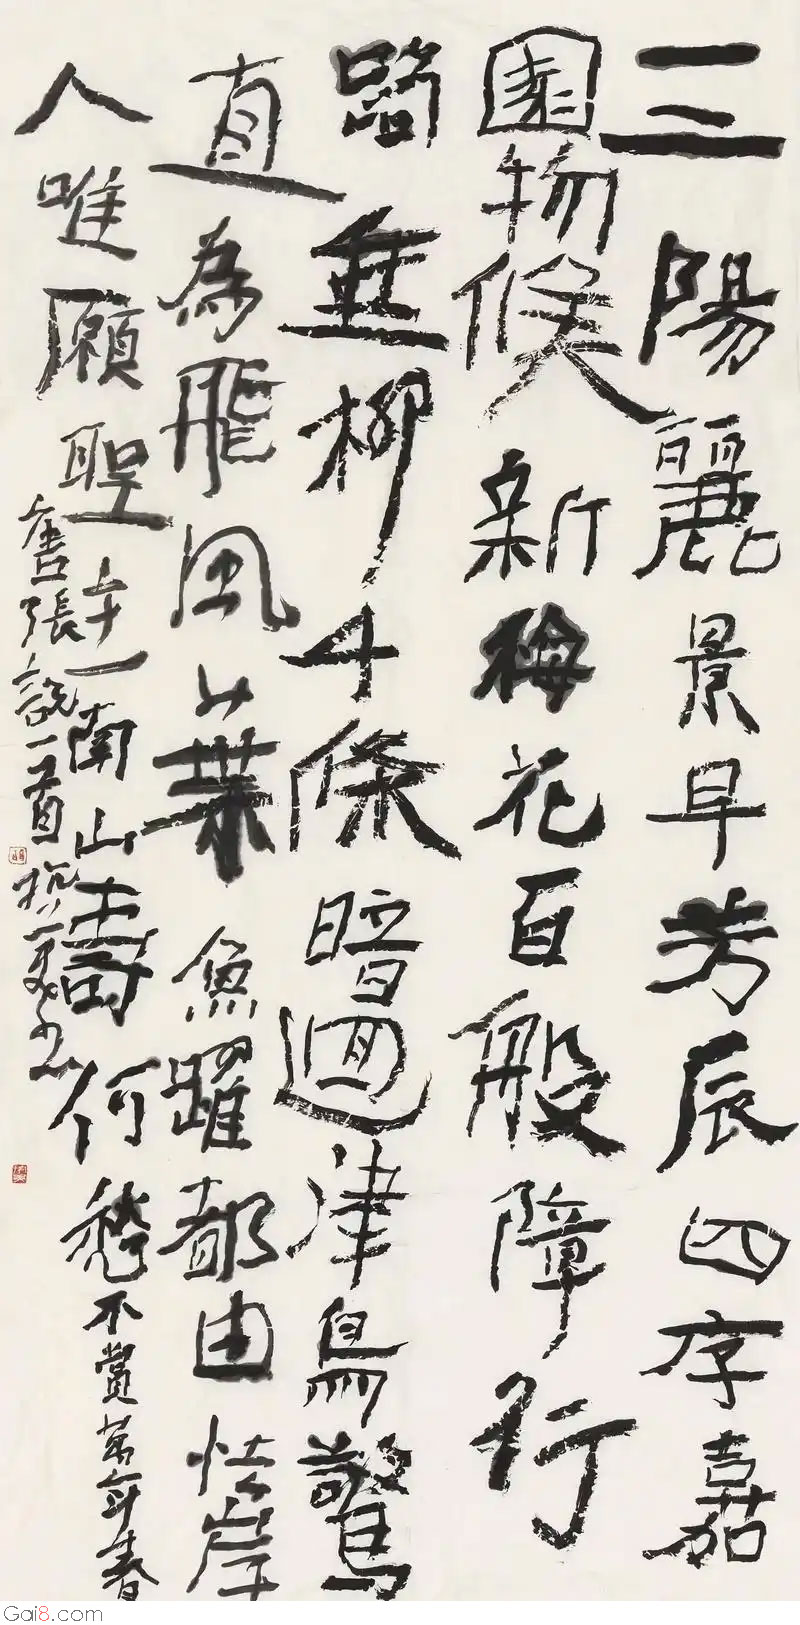 三陽麗景早芳辰四序嘉
園物候新梅花百般障行
路垂柳千條暗迴津鳥驚
直為飛風葉魚躍都由怯岸
人唯願聖主南山壽何愁不賞萬年春
唐張說一首
Gai8.com